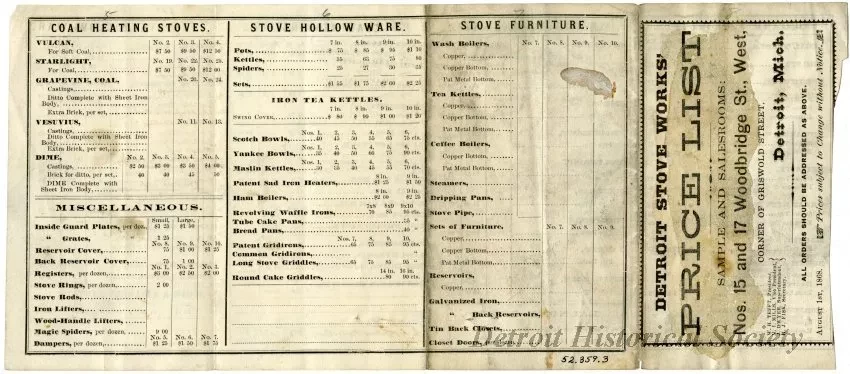 5
COAL HEATING STOVES.
VULCAN, No. 2. No. 3. No. 4.
For Soft Coal, $7 50 $9 50 $12 50
STARLIGHT, No. 19. No. 22. No. 25.
For Coal, $7 50 $9 50 $12 00
GRAPEVINE, COAL, No. 20. No. 24.
Castings,
Ditto Complete with Sheet Iron
Body,
Extra Brick, per set,
VESUVIUS, No. 11. No. 13.
Castings,
Ditto Complete with Sheet Iron
Body,
Extra Brick, per set,
DIME, No. 2. No. 3. No. 4. No. 5.
Castings, $2 50 $3 00 $3 50 $4 00
Brick for ditto, per set, 40 40 45 50
DIME Complete with
Sheet Iron Body,
MISCELLANEOUS.
Small, Large.
Inside Guard Plates, per doz. $1 25 $1 50
" Grates, 1 25
No. 8. No. 9. No. 10.
Reservoir Cover, 75 $1 00 $1 25
Back Reservoir Cover, 75 1 00
No. 1. No. 2. No. 3.
Registers, per dozen, $2 50 $2 00
Stove Rings, per dozen, 2 00
Stove Rods,
Iron Lifters,
Wood-Handle Lifters,
Magic Spiders, per dozen, 9 00
No. 5. No. 6. No. 7.
Dampers, per dozen, $1 25 $1 50 $1 75
6
STOVE HOLLOW WARE.
7 in. 8 in. 9 in. 10 in.
Pots, $ 75 $ 85 $ 95 $1 10
Kettles, 55 65 75 80
Spiders, 25 25 30 35
Sets, $1 55 $1 75 $2 00 $2 25
IRON TEA KETTLES.
7 in. 8 in. 9 in. 10 in.
SWING COVER, $ 80 $ 90 $1 00 $1 20
Nos. 1, 2, 3, 4, 5, 6,
Scotch Bowls, 40 45 50 55 65 75 cts.
Nos. 1, 2, 3, 4, 5, 6,
Yankee Bowls, 35 40 50 60 75 90 cts.
Nos. 1, 2, 3, 4, 5, 6,
Maslin Kettles,
8 in. 9 in.
Patent Sad Iron Heaters, $1 25 $1 50
8 in. 9 in.
Ham Boilers, $2 00 $2 25
7x8 8x9 9x10
Revolving Waffle Irons, 70 85 95 cts.
Tube Cake Pans, 55 "
Bread Pans, 40 "
Nos. 7, 8, 9, 10,
Patent Gridirons, 65 75 85 95 cts.
Common Gridirons,
Long Stove Griddles, 65 75 85 95 "
14 in. 16 in.
Round Cake Griddles, 80 90 cts.
STOVE FURNITURE.
Wash Boilers, No. 7. No. 8. No. 9. No. 10.
Copper,
Copper Bottom,
Pat Metal Bottom,
Tea Kettles,
Copper,
Copper Bottom,
Pat Metal Bottom,
Coffee Boilers,
Copper,
Copper Bottom,
Pat Metal Bottom,
Steamers,
Dripping Pans,
Stove Pipe,
Sets of Furniture, No. 7. No. 8. No. 9.
Copper,
Copper Bottom,
Pat Metal Bottom,
Reservoirs,
Copper,
Galvanized Iron,
" Back Reservoirs,
Tin Back Closets,
Closet Doors,
52.357.3
DETROIT STOVE WORKS'
PRICE LIST
SAMPLE AND SALEROOMS:
Nos. 15 and 17 Woodbridge St., West,
CORNER OF GRISWOLD STREET,
Detroit, Mich.
ALL ORDERS SHOULD BE ADDRESSED AS ABOVE.
Prices subject to Change without Notice.
AUGUST 1ST, 1868.
Detroit Historical Society